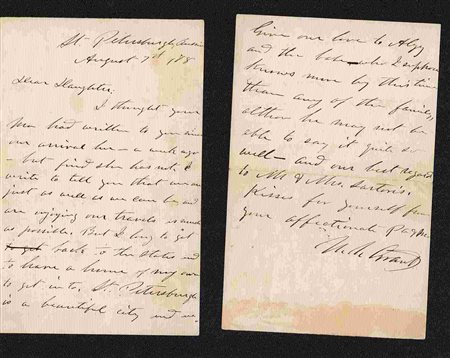 St. Petersburgh, Russia
August 7th 1878
Dear Daughter;
I thought your
Ma had written to you since
our arrival here a week ago
- but find she has not. I
write to tell you that we are
just as well as we can be, and
are enjoying our travels as much
as possible. But I long to get
back to the States and
to have a home of my own
to get into. St. Petersburgh
is a beautiful city and
Give our love to Algy
and the babe who I suppose
knows more by this time
than any of the family,
altho he may not be
able to say it quite so
well - and our best regards
to Mr. & Mrs. Sartoris.
Kisses for yourself from
your affectionate Papa
U. S. Grant